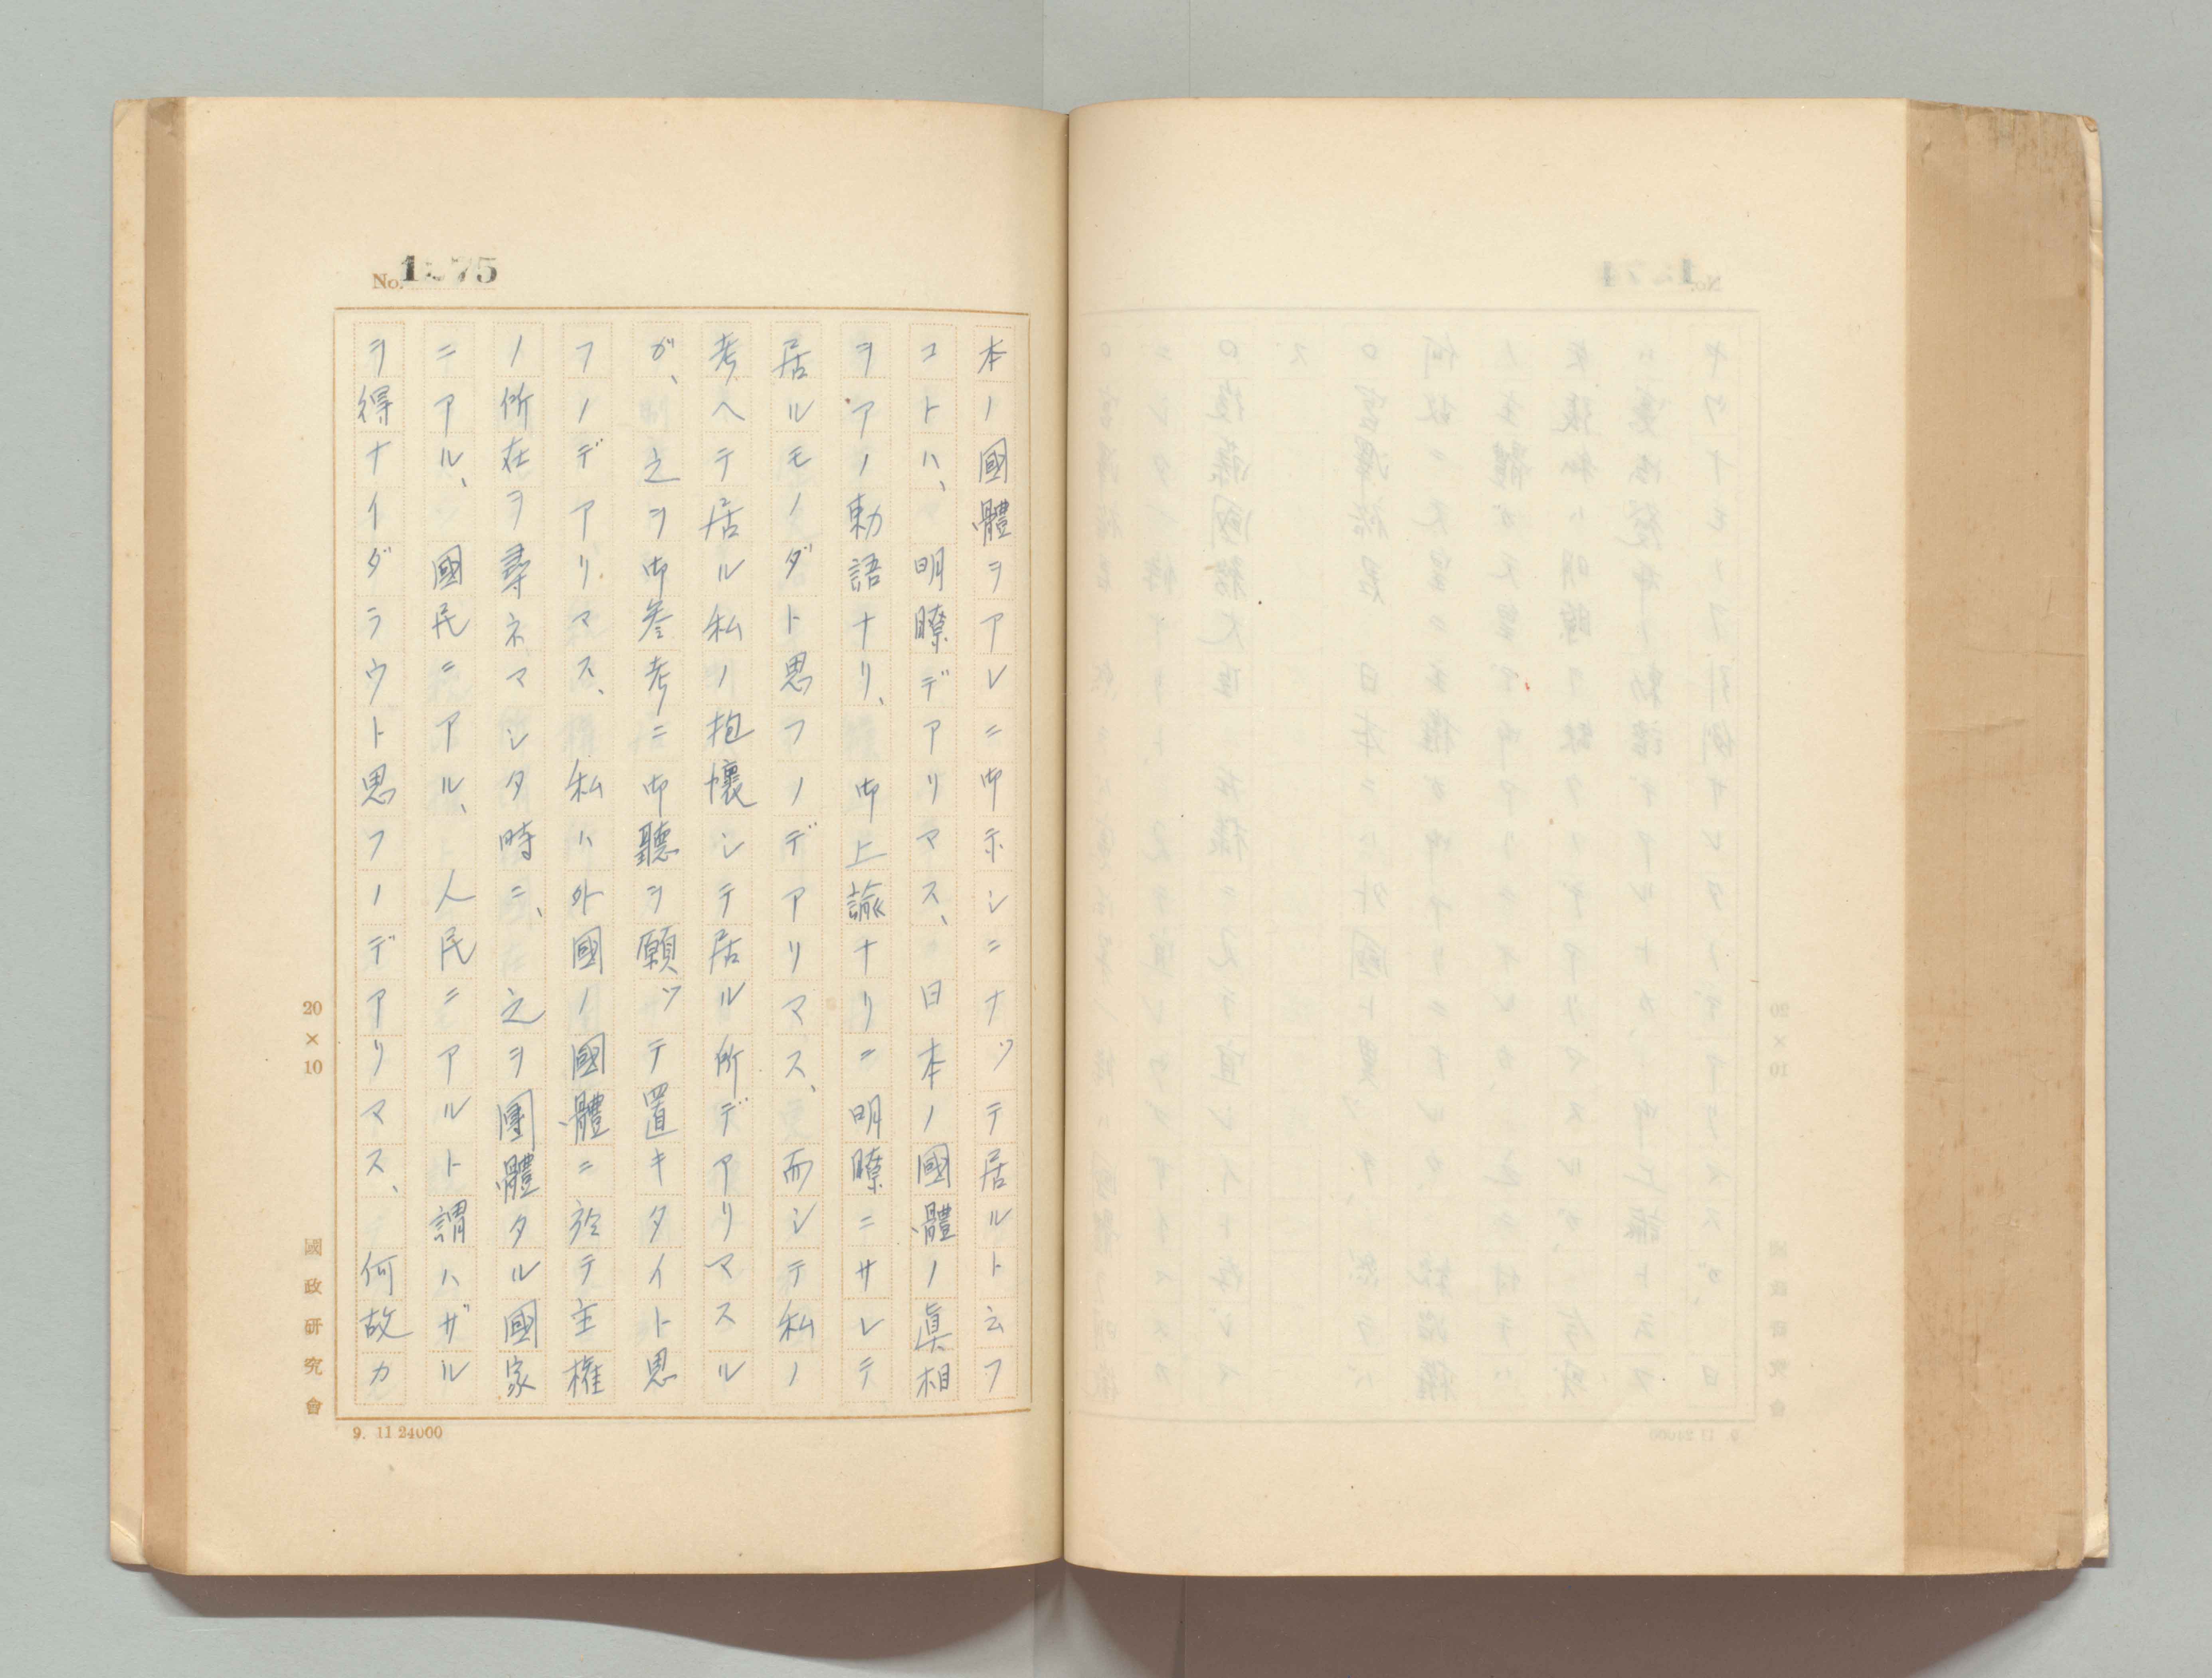 No. 1275
本ノ國體ヲアレニ御示シニナツテ居ルト云フ
コトハ、明瞭デアリマス、日本ノ國體ノ眞相
ヲアノ勅語ナリ、御上諭ナリニ明瞭ニサレテ
居ルモノダト思フノデアリマス、而シテ私ノ
考ヘテ居ル私ノ抱懷シテ居ル所デアリマスル
ガ、之ヲ御参考ニ御聽ヲ願ツテ置キタイト思
フノデアリマス、私ハ外國ノ國體ニ於テ主権
ノ所在ヲ尋ネマシタ時ニ、之ヲ團體タル國家
ニアル、國民ニアル、人民ニアルト謂ハザル
ヲ得ナイダラウト思フノデアリマス、何故カ
20×10
國政研究會
9. 11 24000